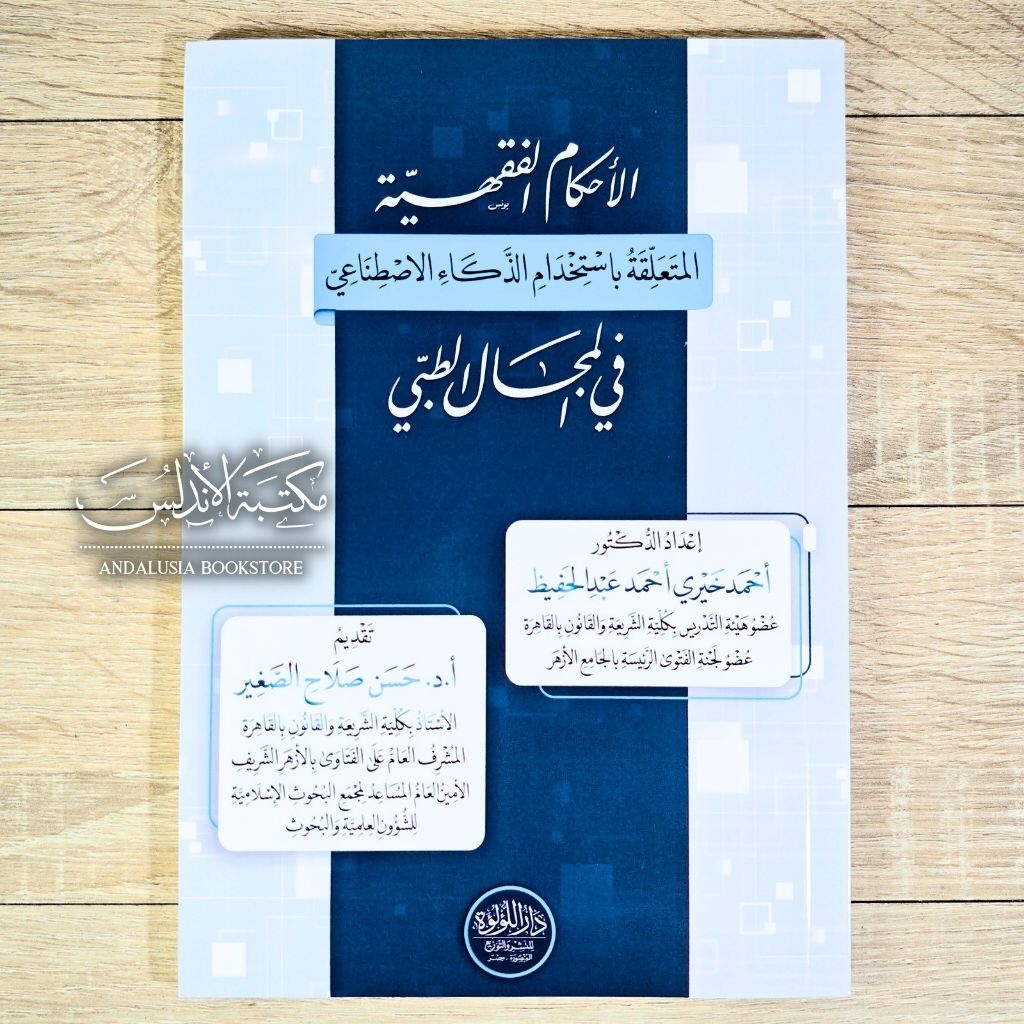 الأحكام الفقهيّة
يونس
المتَعَلِّقَةُ بِاسْتِخْدَامِ الذَّكَاءِ الاصْطِنَاعِيّ
في المجال الطبّي
إعْدَادُ الدُّكْتُور
أحْمَد خَيْري أحْمَد عَبْدِ الحَفِيظ
عُضْوُ هَيْئَةِ التَّدْرِيس بِكُلِّيَةِ الشَّرِيعَةِ وَالقَانُونِ بِالقَاهِرَة
عُضْوُ لَجْنَةِ الفَتْوَى الرَّئِيسَةِ بِالجَامِعِ الأزْهَر
مكتبة الأندلس
ANDALUSIA BOOKSTORE
تَقْدِيمُ
أ.د. حَسَن صَلَاحِ الصَّغِير
الأسْتَاذُ بِكُلِّيَةِ الشَّرِيعَةِ وَالقَانُونِ بِالقَاهِرَة
المشْرِفُ العَامُّ عَلَى الفَتَاوَى بِالأزْهَرِ الشَّرِيفِ
الأمِينُ العَامُّ المسَاعِدُ لِمَجْمَعِ البُحُوثِ الإسْلَامِيَّةِ
لِلشُّؤُونِ العِلمِيَّةِ وَالبُحُوثِ
دَارُ اللُّؤْلُؤَة
لِلنَّشْرِ وَالتَّوْزِيعِ
المَنْصُورَة - مِصْر